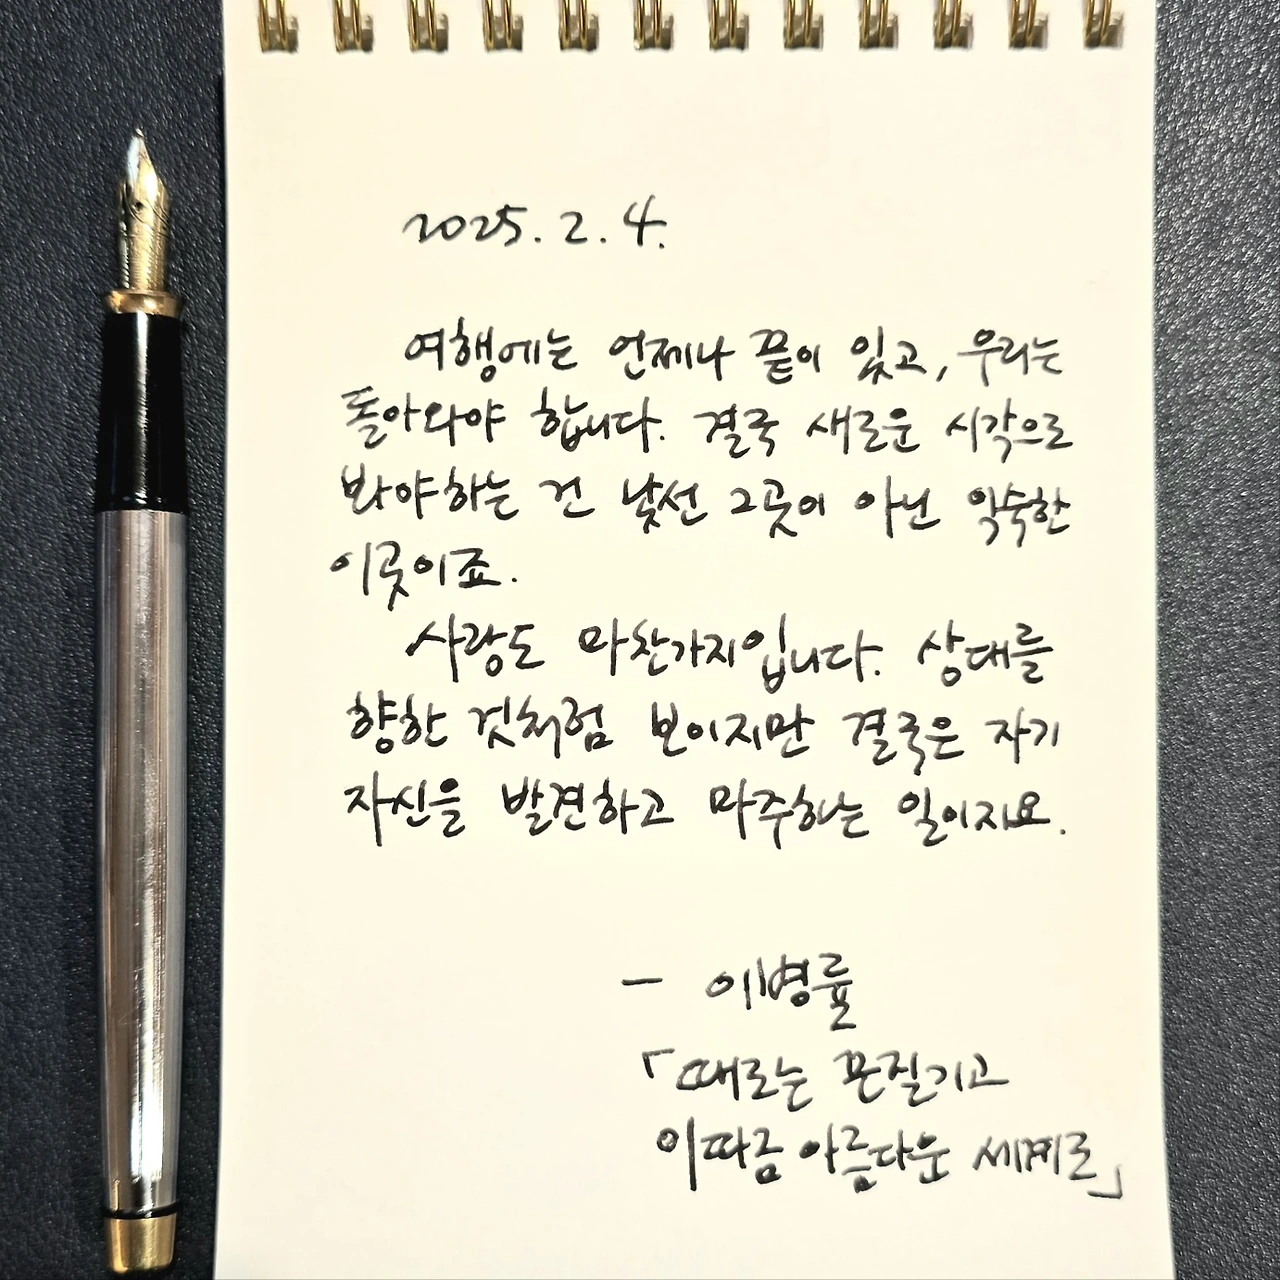 2025. 2. 4.
여행에는 언제나 끝이 있고, 우리는
돌아와야 합니다. 결국 새로운 시각으로
봐야하는 건 낯선 그곳이 아닌 익숙한
이곳이죠.
사랑도 마찬가지입니다. 상대를
향한 것처럼 보이지만 결국은 자기
자신을 발견하고 마주하는 일이지요.
- 이병률
「때로는 끈질기고
이따금 아름다운 세계로」